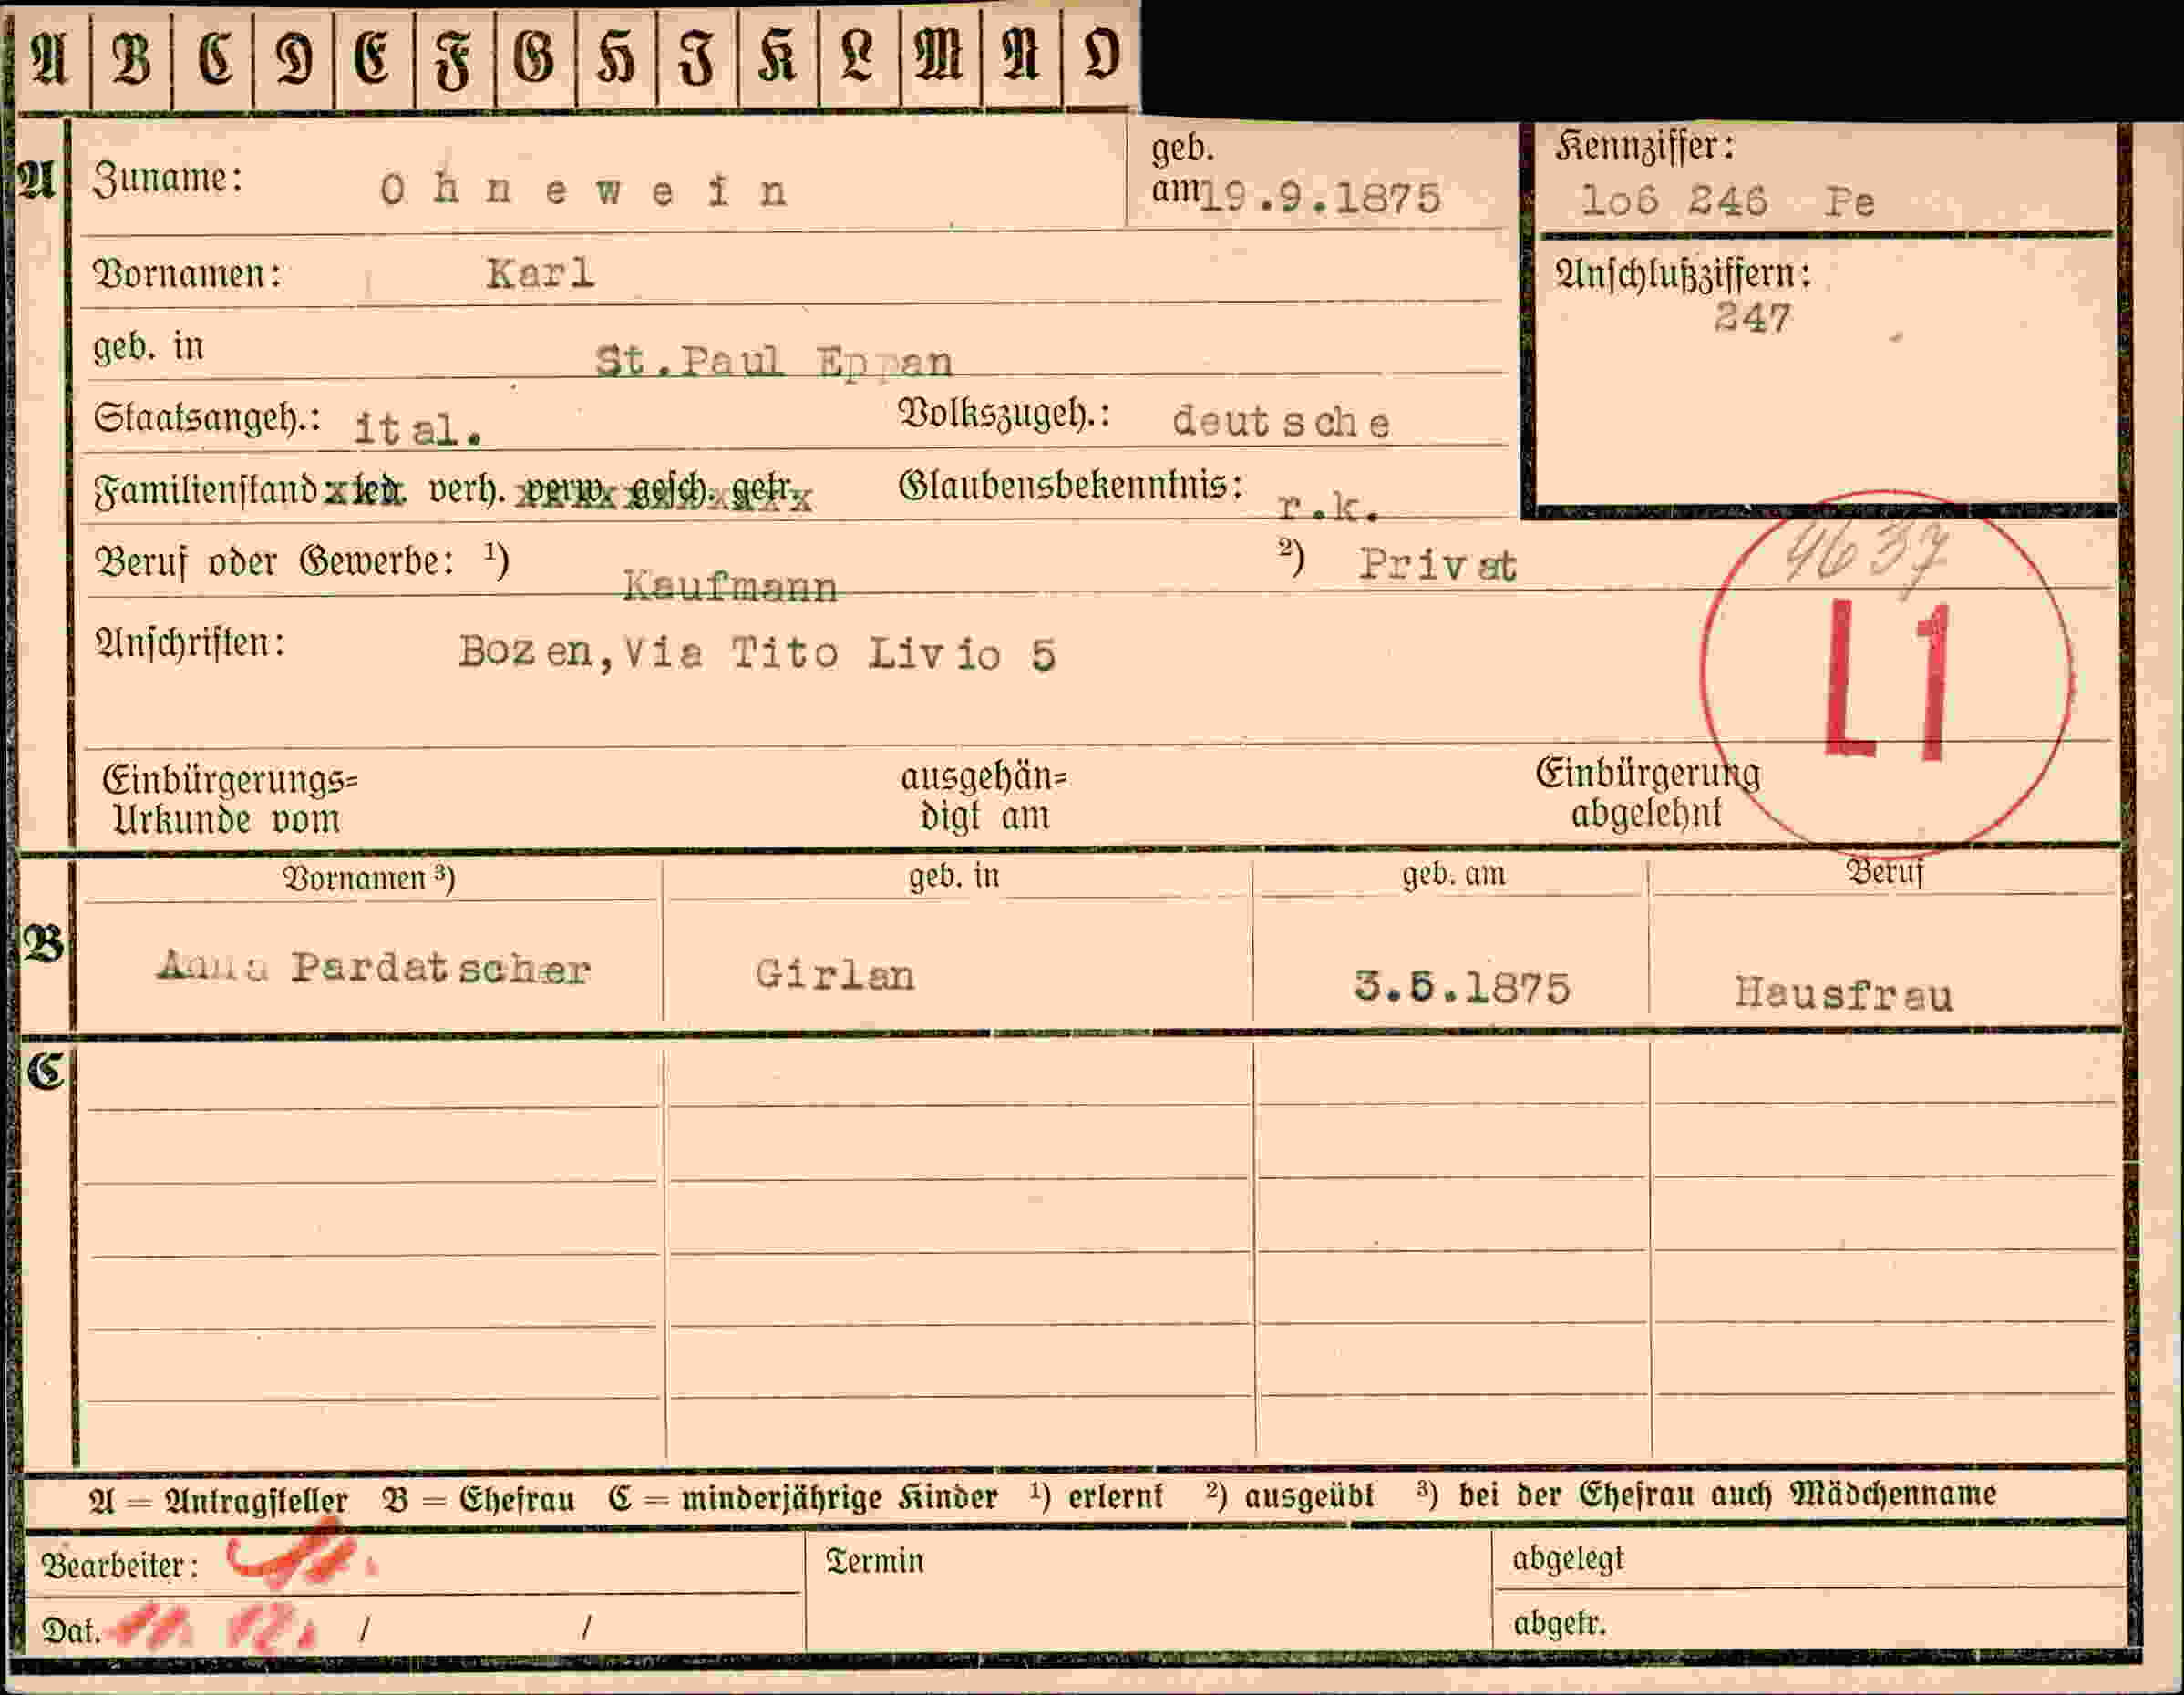 A B C D E F G H I K L M N O
A Zuname: Ohnewein geb. am 19.9.1875 Kennziffer: 1o6 246 Pe
Vornamen: Karl Anschlußziffern: 247
geb. in St.Paul Eppan
Staatsangeh.: ital. Volkszugeh.: deutsche
Familienstand led. verh. verw. gesch. getr. Glaubensbekenntnis: r.k.
Beruf oder Gewerbe: ¹) Kaufmann ²) Privat 4637
Anschriften: Bozen,Via Tito Livio 5 L1
Einbürgerungs= ausgehän= Einbürgerung
Urkunde vom digt am abgelehnt
Vornamen ³) geb. in geb. am Beruf
B Anna Pardatscher Girlan 3.5.1875 Hausfrau
C
A = Antragsteller B = Ehefrau C = minderjährige Kinder ¹) erlernt ²) ausgeübt ³) bei der Ehefrau auch Mädchenname
Bearbeiter: Termin abgelegt
Dat. 11. 12. / / abgetr.